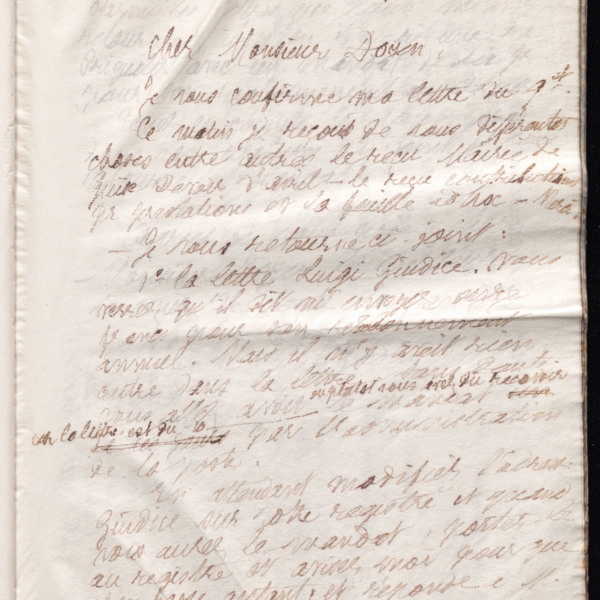 Cher Monsieur Doven
Je vous confirme ma lettre du
Ce matin je reçois de vous différentes
choses entre autres le reçu Mairie de
d'avril – le reçu contributions
prestations et la feuille ad hoc –
– Je vous retourne ci joint:
1° la lettre Luigi Giudice. Vous
verrez qu'il dit m'envoyer onze
francs pour son abonnement
annuel. Mais il n'y avait rien
autre dans la lettre
vous avoir ou plutôt vous avez du recevoir le mandat
car la lettre est du 10 par l'administration
de la poste.
En attendant modifiez l'adresse
Giudice sur votre registre et quand
vous aurez le mandat, portez-le
au registre et avisez moi pour que
et réponde à M.